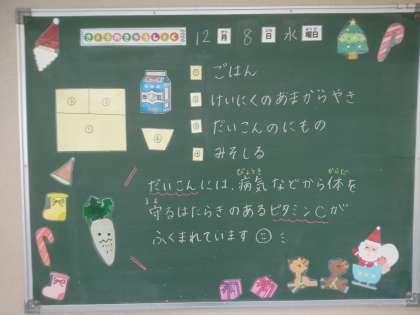 きょうのきゅうしょく
12月8日水曜日
① ごはん
② けいにくのあまからやき
③ だいこんのにもの
④ みそしる
だいこんには、病気などから体を
守るはたらきのあるビタミンCが
ふくまれています